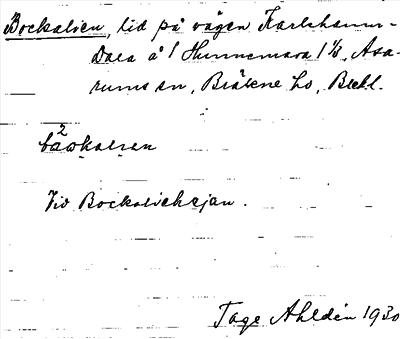 Bockalien, lid på vägen Karlshamn-
Dala å 1 Hunnemara 1⅛, Asa-
rums sn, Bräkne hd, Blekl.
2
båokalien
Vid Bockalichejan.
Tage Ahldén 1930